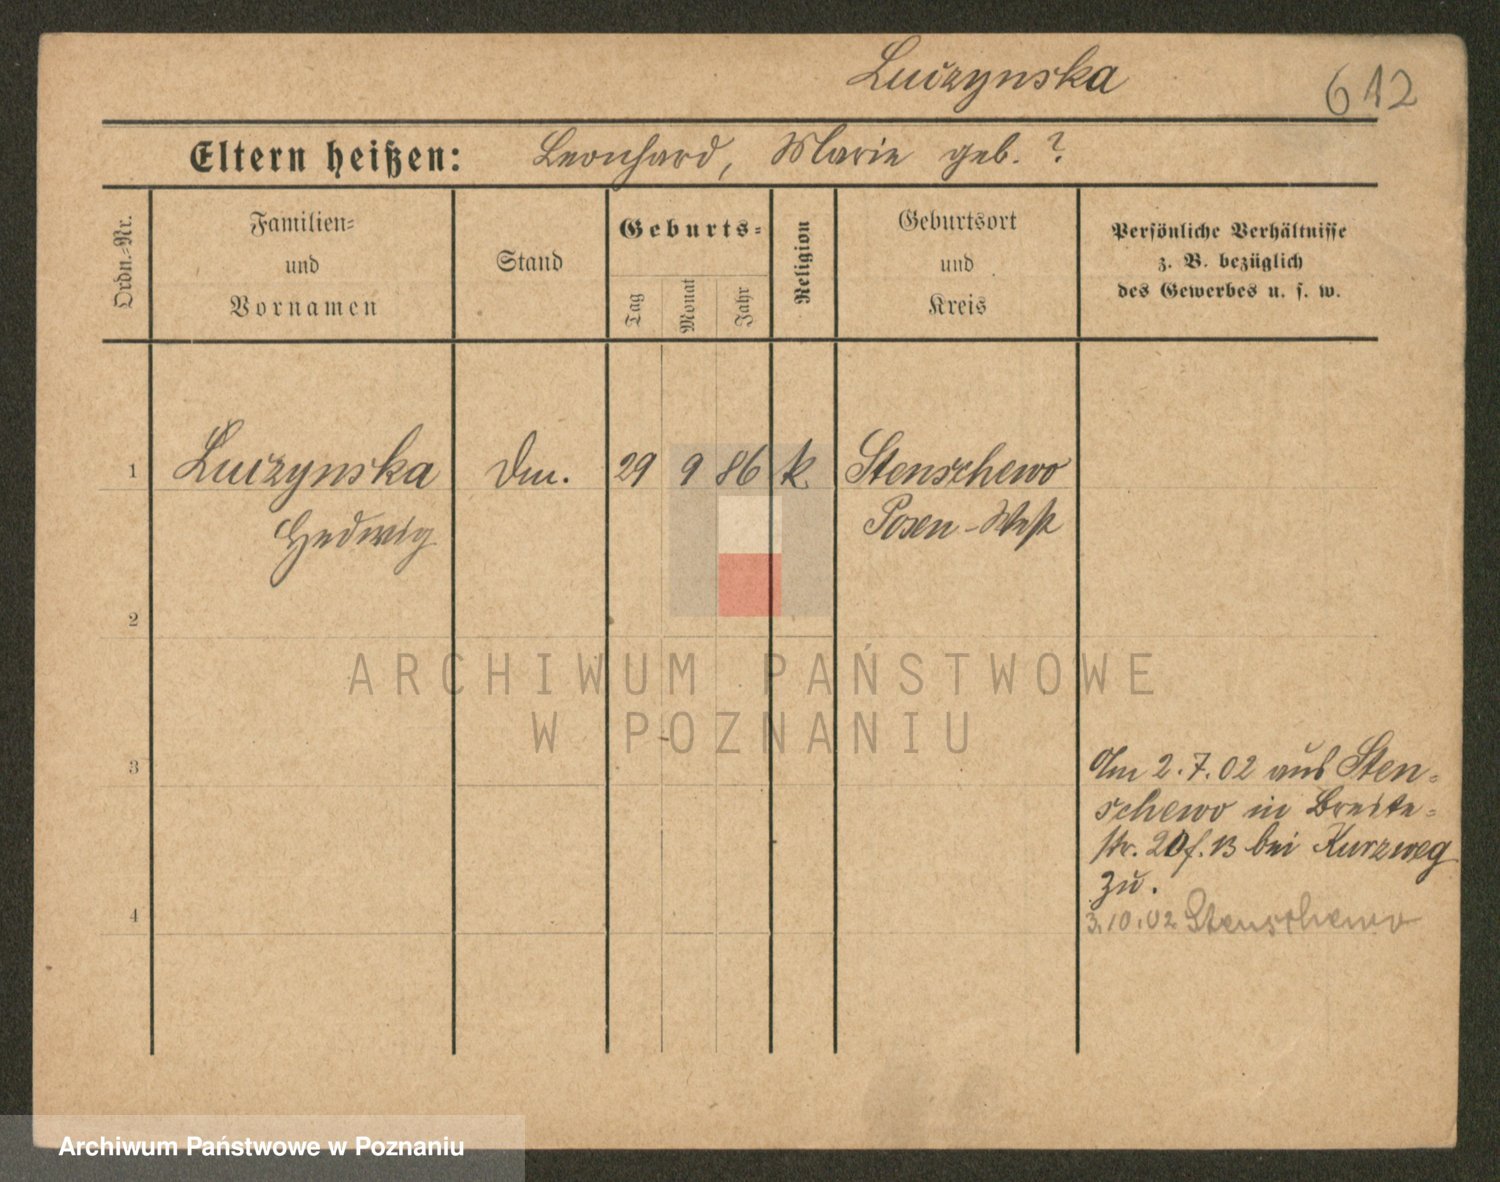 Luczynska
612
Eltern heißen: Leonhard, Marie geb. ?
Ordn.-Nr.
Familien-
und
Vornamen
Stand
Geburts-
Tag
Monat
Jahr
Religion
Geburtsort
und
Kreis
Persönliche Verhältnisse
z. B. bezüglich
des Gewerbes u. s. w.
1 Luczynska 29 9 86 k. Stenschewo
Hedwig Posen-West
2
ARCHIWUM PAŃSTWOWE
W POZNANIU
3
Am 2.7.02 aus Sten-
schewo in Breite-
str. 20 f. 13 bei Kurzweg
zu.
4
3.10.02 Stenschewo
Archiwum Państwowe w Poznaniu